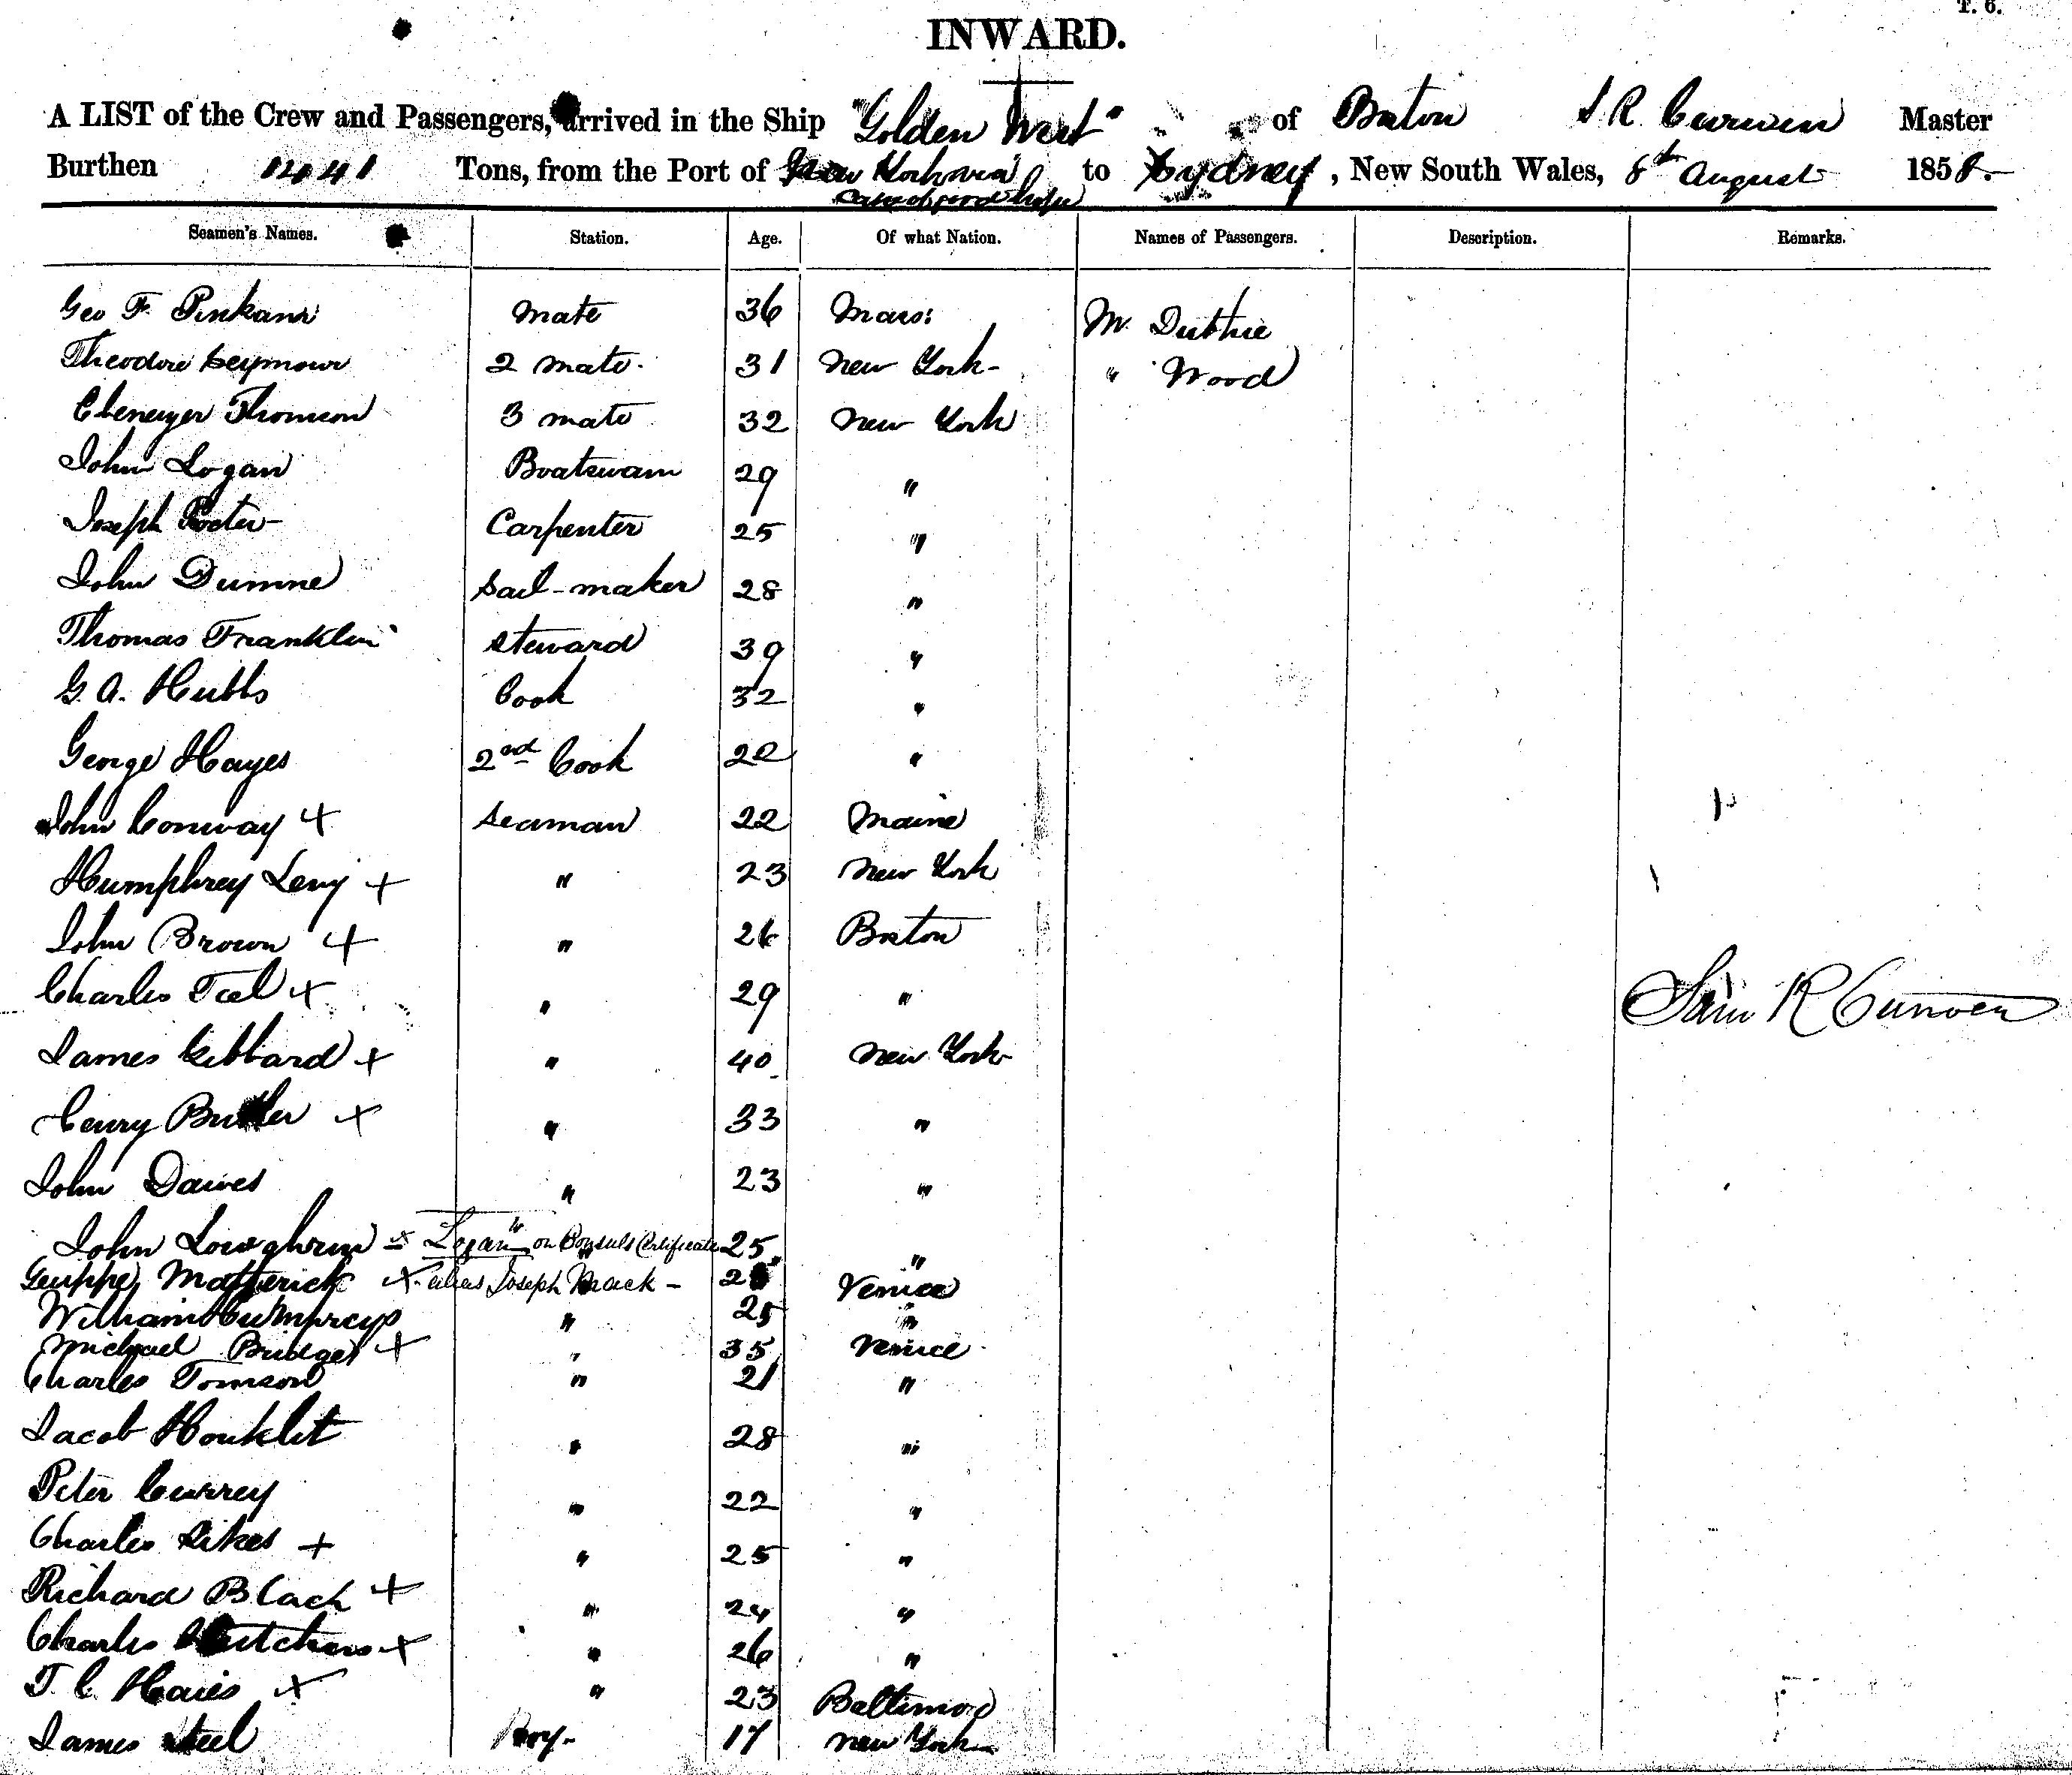 T. 6.
INWARD.
A LIST of the Crew and Passengers, arrived in the Ship "Golden West" of Boston S R Curwen Master
Burthen 1441 Tons, from the Port of New York via to Sydney, New South Wales, 8th August 1858.
Cape of good hope
Seamen's Names. Station. Age. Of what Nation. Names of Passengers. Description. Remarks.
Geo F. Pinkham mate 36 Mass: Mr Duthie
Theodore Seymour 2 mate. 31 New York " Wood
Ebenezer Thomson 3 mate 32 New York
John Logan Boatswain 29 "
Joseph Carpenter 25 "
John Dumne Sail-maker 28 "
Thomas Franklin steward 39 "
G. A. Hubbs Cook 32 "
George Hayes 2nd Cook 22 "
John Conway + Seaman 22 Maine
Humphrey Levy + " 23 New York
John Brown + " 26 Boston
Charles Teel + " 29 " Sam R Curwen
James Gibbard + " 40 New York
Henry Butler + " 33 "
John Dawes " 23 "
John Loughrin + = Logan " on Consuls Certificate 25 "
Guippe + alias Joseph Mack - Venice
William Humphreys " 25 "
Michael Bridget + " 35 Venice
Charles Tomson " 21 "
Jacob Honklit " 28 "
Peter Currey " 22 "
Charles Sikes + " 25 "
Richard Black + " 24 "
Charles Hutchins + " 26 "
T. C. Haies + " 23 Baltimore
James Steel Boy- 17 New York